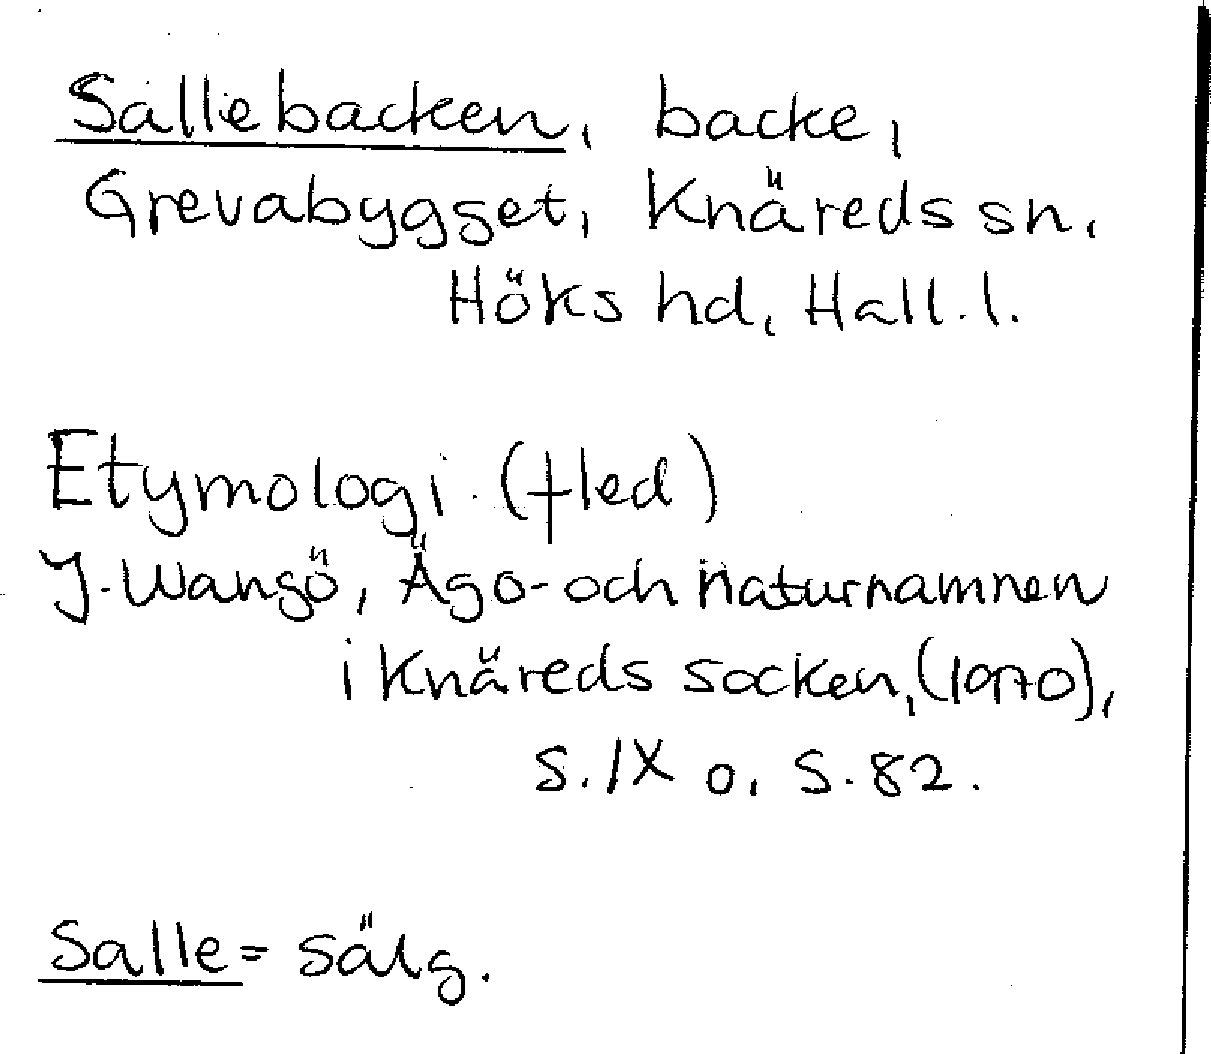 Sallebacken, backe,
Grevabygget, Knäreds sn,
Höks hd, Hall. l.
Etymologi. (fled)
J. Wangö, Ägo- och naturnamnen
i Knäreds socken, (1970),
s. IX o, s. 82.
Salle = sälg.